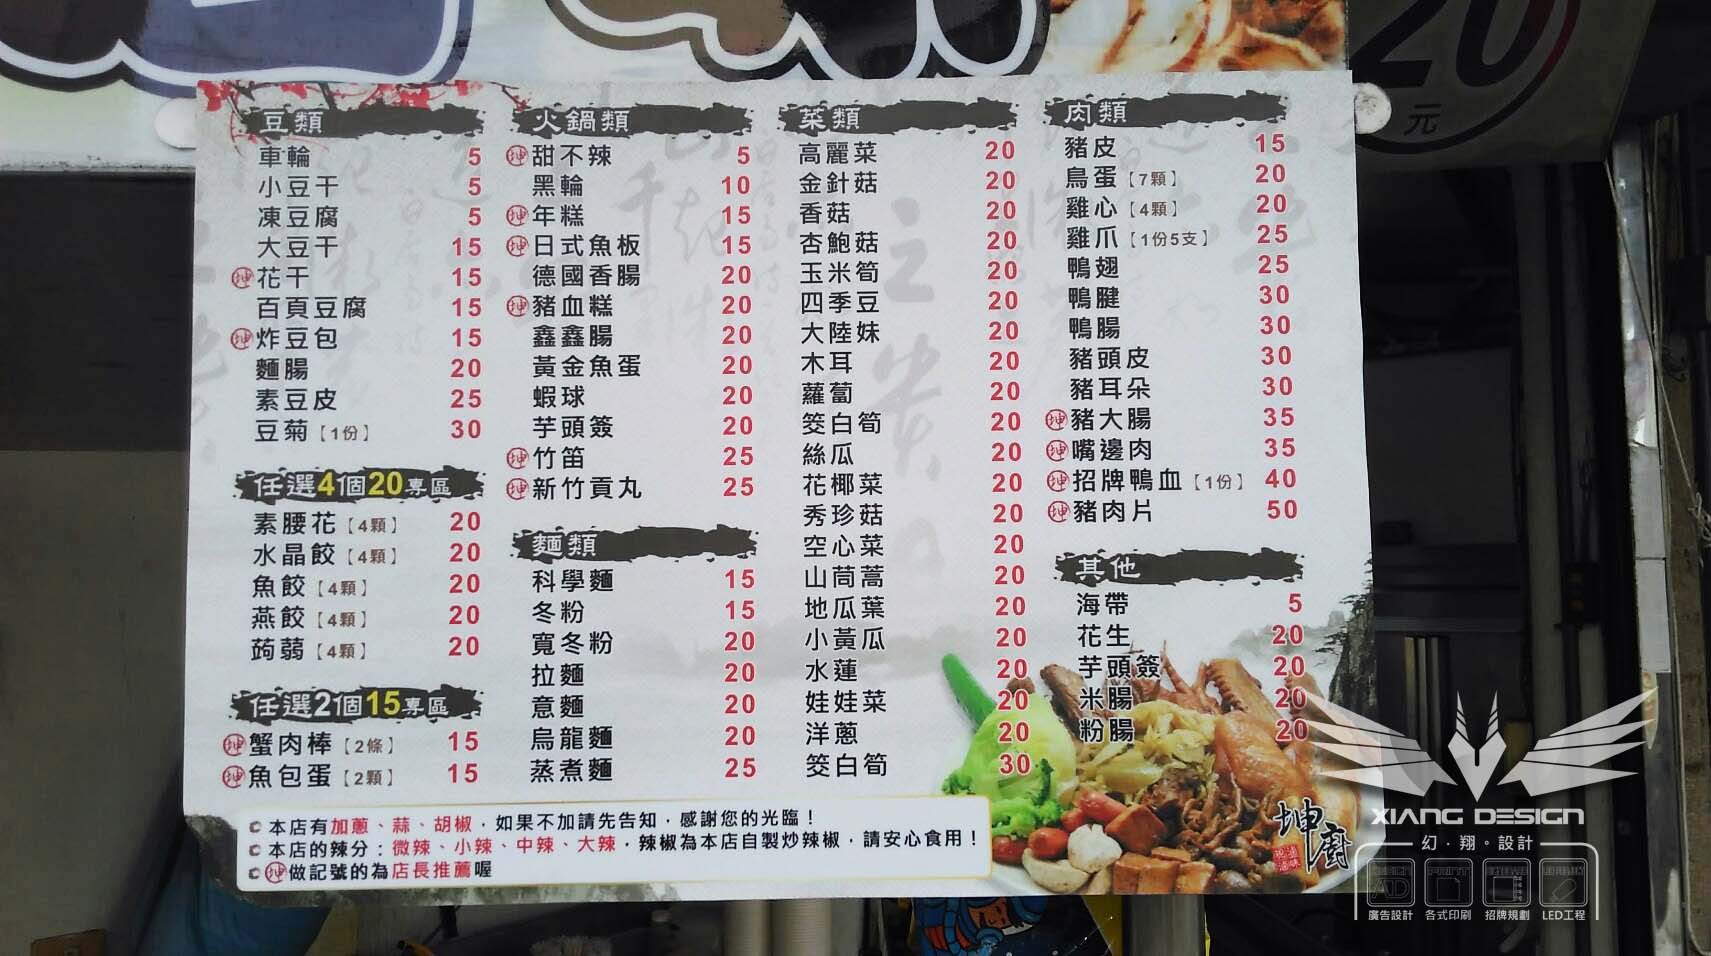 豆類
車輪 5
小豆干 5
凍豆腐 5
大豆干 15
坤 花干 15
百頁豆腐 15
坤 炸豆包 15
麵腸 20
素豆皮 25
豆菊【1份】 30
任選4個20專區
素腰花【4顆】 20
水晶餃【4顆】 20
魚餃【4顆】 20
燕餃【4顆】 20
蒟蒻【4顆】 20
任選2個15專區
坤 蟹肉棒【2條】 15
坤 魚包蛋【2顆】 15
火鍋類
坤 甜不辣 5
黑輪 10
坤 年糕 15
坤 日式魚板 15
德國香腸 20
坤 豬血糕 20
鑫鑫腸 20
黃金魚蛋 20
蝦球 20
芋頭簽 20
坤 竹笛 25
坤 新竹貢丸 25
麵類
科學麵 15
冬粉 15
寬冬粉 20
拉麵 20
意麵 20
烏龍麵 20
蒸煮麵 25
菜類
高麗菜 20
金針菇 20
香菇 20
杏鮑菇 20
玉米筍 20
四季豆 20
大陸妹 20
木耳 20
蘿蔔 20
筊白筍 20
絲瓜 20
花椰菜 20
秀珍菇 20
空心菜 20
山茼蒿 20
地瓜葉 20
小黃瓜 20
水蓮 20
娃娃菜 20
洋蔥 20
筊白筍 30
肉類
豬皮 15
鳥蛋【7顆】 20
雞心【4顆】 20
雞爪【1份5支】 25
鴨翅 25
鴨腱 30
鴨腸 30
豬頭皮 30
豬耳朵 30
坤 豬大腸 35
坤 嘴邊肉 35
坤 招牌鴨血【1份】 40
坤 豬肉片 50
其他
海帶 5
花生 20
芋頭簽 20
米腸 20
粉腸 20
本店有加蔥、蒜、胡椒，如果不加請先告知，感謝您的光臨！
本店的辣分：微辣、小辣、中辣、大辣，辣椒為本店自製炒辣椒，請安心食用！
坤做記號的為店長推薦喔
坤廚
滷味
20
元
XIANG DESIGN
幻．翔。設計
廣告設計 各式印刷 招牌規劃 LED工程